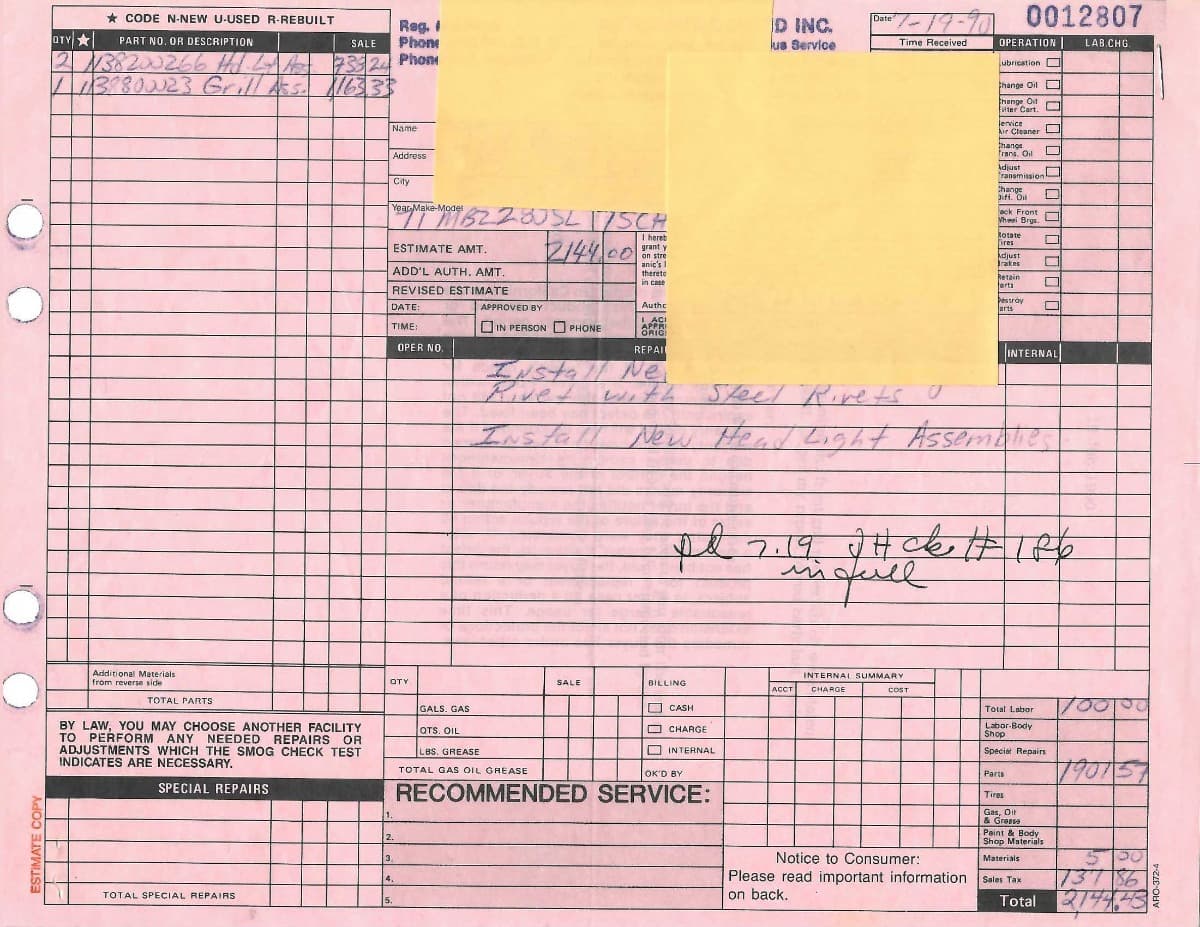 ★ CODE N-NEW U-USED R-REBUILT
QTY ★ PART NO. OR DESCRIPTION SALE
2 1138200266 Hd. Lt Ass. 738 24
1 1138800023 Grill Ass. 1163.33
Reg.
Phone
Phone
D INC.
us Service
Date 7-19-90
Time Received
0012807
OPERATION LAB.CHG.
Lubrication
Change Oil
Change Oil
Filter Cart.
Service
Air Cleaner
Change
Trans. Oil
Adjust
Transmission
Change
Diff. Oil
Pack Front
Wheel Brgs.
Rotate
Tires
Adjust
Brakes
Retain
Parts
Destroy
Parts
INTERNAL
Name
Address
City
Year-Make-Model
71 MBZ 280SL 15CH
ESTIMATE AMT. 2144.00
ADD'L AUTH. AMT.
REVISED ESTIMATE
DATE: APPROVED BY
TIME: IN PERSON PHONE
I hereb
grant y
on stre
anic's l
thereto
in case
Autho
I AC
APPR
ORIG
OPER NO. REPAI
Install Ne
Rivet with Steel Rivets
Install New Head Light Assemblies
pd 7.19 JH ck # 186
in full
Additional Materials
from reverse side
TOTAL PARTS
BY LAW, YOU MAY CHOOSE ANOTHER FACILITY
TO PERFORM ANY NEEDED REPAIRS OR
ADJUSTMENTS WHICH THE SMOG CHECK TEST
INDICATES ARE NECESSARY.
SPECIAL REPAIRS
TOTAL SPECIAL REPAIRS
ESTIMATE COPY
QTY SALE
GALS. GAS
QTS. OIL
LBS. GREASE
TOTAL GAS OIL GREASE
BILLING
CASH
CHARGE
INTERNAL
OK'D BY
INTERNAL SUMMARY
ACCT CHARGE COST
RECOMMENDED SERVICE:
1.
2.
3.
4.
5.
Notice to Consumer:
Please read important information
on back.
Total Labor 100 00
Labor-Body
Shop
Special Repairs
Parts 1901 57
Tires
Gas, Oil
& Grease
Paint & Body
Shop Materials
Materials 5 00
Sales Tax 137 86
Total 2,144.43
ARO-372-4